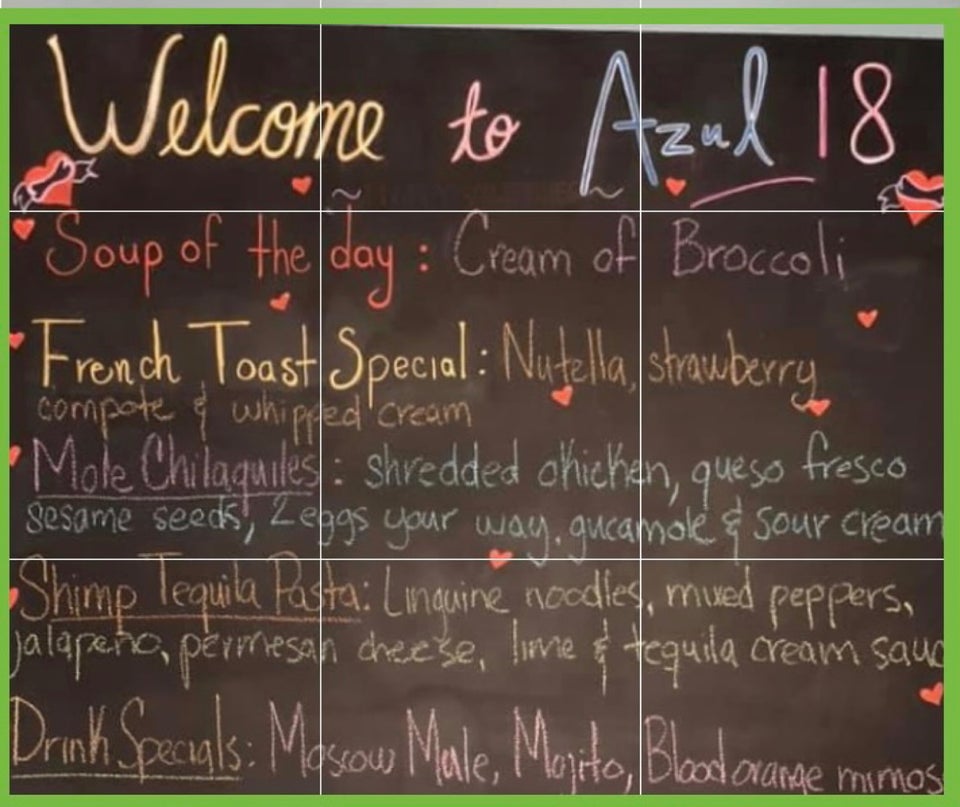 Welcome to Azul 18
Soup of the day : Cream of Broccoli
French Toast Special : Nutella, strawberry
compote & whipped cream
Mole Chilaquiles : shredded chicken, queso fresco
sesame seeds, 2 eggs your way, gucamole & sour cream
Shimp Tequila Pasta: Linguine noodles, mixed peppers,
jalapeño, permesan cheese, lime & tequila cream sauc
Drink Specials: Moscow Male, Mojito, Blood orange mimos